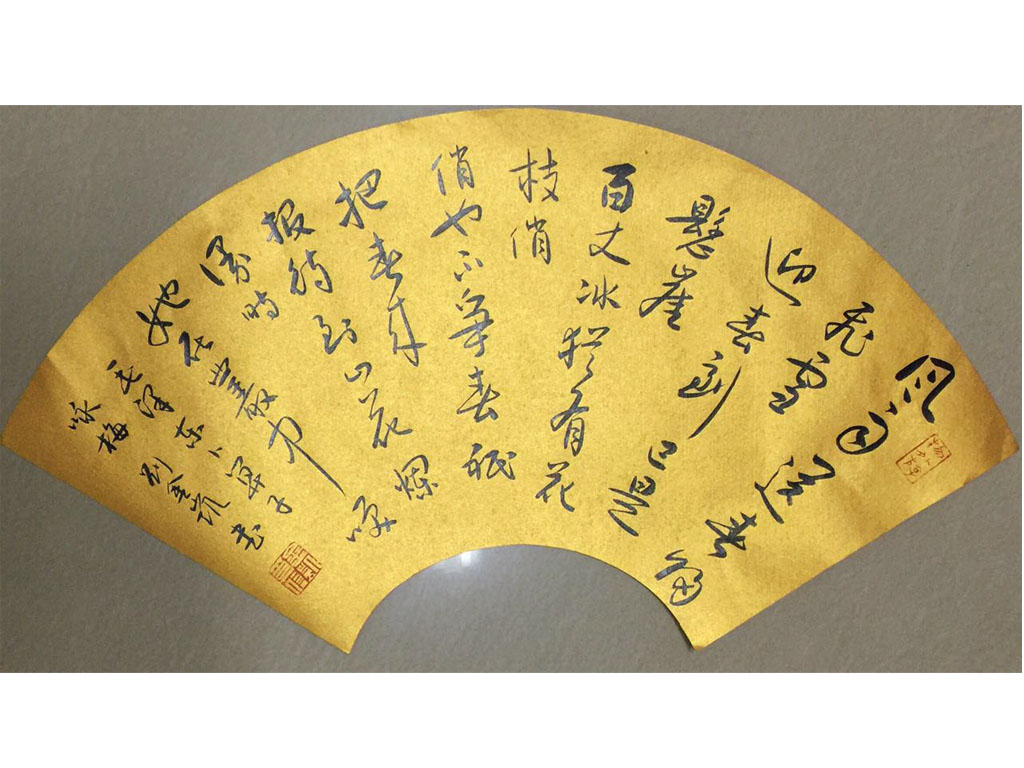 风雨送春归
飞雪
迎春到已是
懸崖
百丈冰犹有花
枝俏
俏也不争春祇
把春来
报待到山花烂
漫时
她在丛中笑
毛泽东卜算子
咏梅 刘金凯书